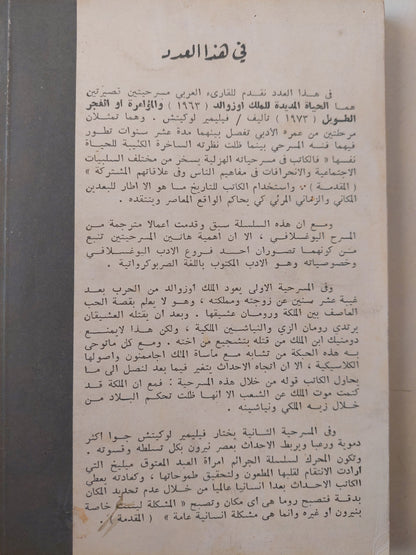 في هذا العدد
في هذا العدد نقدم للقارىء العربي مسرحيتين قصيرتين
هما الحياة المديدة للملك اوزوالد ( ١٩٦٣ ) والمؤامرة او الفجر
الطويل ( ١٩٧٣ ) تأليف / فيليمير لوكيتش . وهما تمثلان
مرحلتين من عمره الأدبي تفصل بينهما مدة عشر سنوات تطور
فيهما فنه المسرحي بينما ظلت نظرته الساخرة الكئيبة للحياة
نفسها « فالكاتب في مسرحياته الهزلية يسخر من مختلف السلبيات
الاجتماعية والانحرافات في مفاهيم الناس وفى علاقاتهم المشتركة »
( المقدمة ) . واستخدام الكاتب للتاريخ ما هو الا اطار للبعدين
المكاني والزماني المرئي كي يحاكم الواقع المعاصر وينتقده .
ومع ان هذه السلسلة سبق وقدمت أعمالا مترجمة من
المسرح اليوغسلافي ، الا ان أهمية هاتين المسرحيتين تنبع
من كونهما تصوران أحد فروع الادب اليوغسلافي
وخصوصياته وهو الادب المكتوب باللغة الصربوكرواتية .
وفي المسرحية الاولى يعود الملك اوزوالد من الحرب بعد
غيبة عشر سنين عن زوجته ومملكته ، وهو لا يعلم بقصة الحب
العاصف بين الملكة ورومان عشيقها . وبعد ان يقتله العشيقان
يرتدى رومان الزي والنياشين الملكية ، ولكن هذا لايمنع
دومنيك ابن الملك من قتله بتشجيع من اخته . ومع كل ماتوحى
به هذه الحبكة من تشابه مع مأساة الملك اجاممنون واصولها
الكلاسيكية ، الا ان اتجاه الاحداث يتغير فيما بعد لنصل الى ما
يحاول الكاتب قوله من خلال هذه المسرحية : فمع ان الملكة قد
كتمت موت الملك عن الشعب الا انها ظلت تحكم البلاد من
خلال زيه الملكي ونياشينه .
وفي المسرحية الثانية يختار فيليمير لوكيتش جوا اكثر
دموية ورعبا ويربط الاحداث بعصر نيرون بكل تسلطه وقسوته .
وتكون المحرك لسلسلة الجرائم امرأة العبد المعتوق ميليخ التي
ارادت الانتقام لقلبها المطعون ولتحقيق طموحاتها ، وكعادته يعطي
الكاتب الاحداث بعدا انسانيا عالميا من خلال عدم تحديد المكان
بدقة فتصبح روما هى اى مكان وتصبح « المشكلة ليست خاصة
بنيرون او غيره وانما هى مشكلة انسانية عامة » ( المقدمة ) .